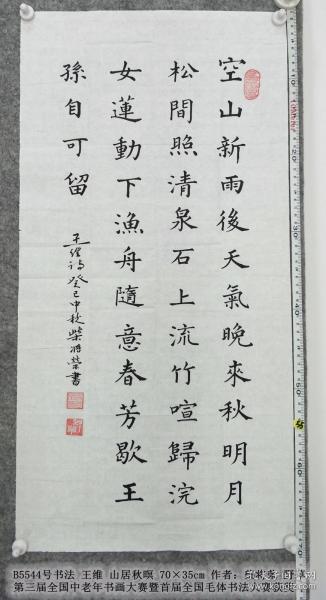 空山新雨後天氣晚來秋明月
松間照清泉石上流竹喧歸浣
女蓮動下漁舟隨意春芳歇王
孫自可留
王維詩癸巳中秋柴將榮書
B5544号书法 王维 山居秋暝 70×35cm 作者：
第三届全国中老年书画大赛暨首届全国毛体书法大赛